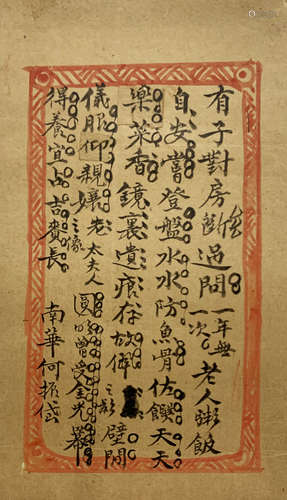 有子對房斷過問一年無一次老人粥飯
自安嘗登盤水水防魚骨佐饌天天
樂菜香鏡裏遺痕存故之影壁間
儀服仰親孃老太夫人之像圓曾受金光
得養宜占吉賚長南華何振岱